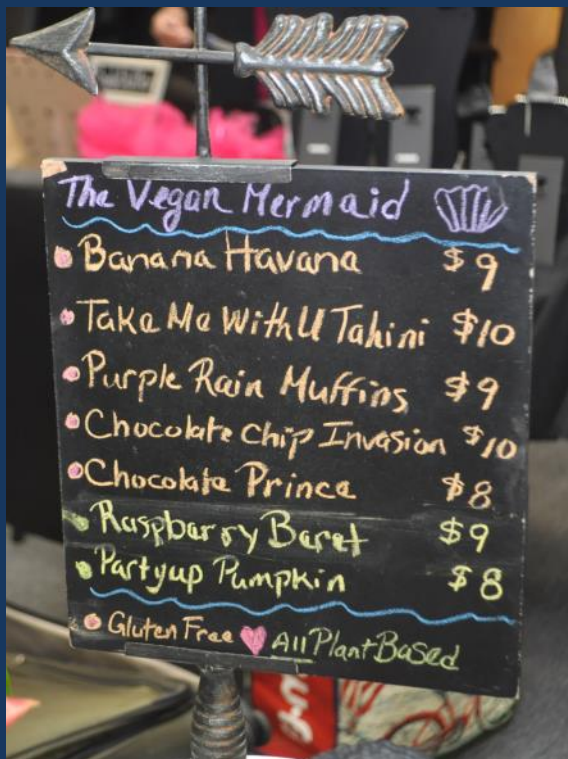 The Vegan Mermaid
Banana Havana $9
Take Me With U Tahini $10
Purple Rain Muffins $9
Chocolate Chip Invasion $10
Chocolate Prince $8
Raspbarry Baret $9
Partyup Pumpkin $8
Gluten Free All Plant Based